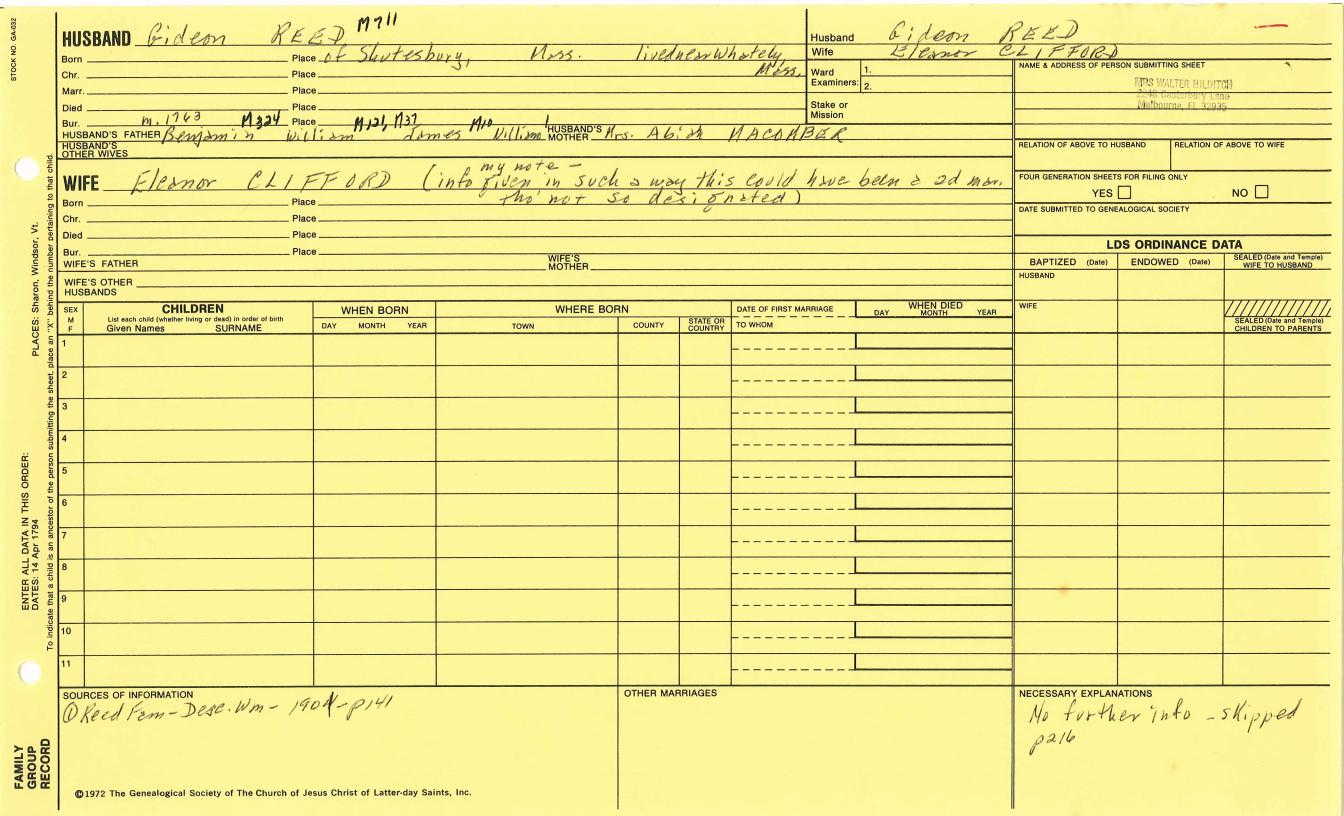 STOCK NO. GA-032
PLACES: Sharon, Windsor, Vt.
ENTER ALL DATA IN THIS ORDER:
DATES: 14 Apr 1794
To indicate that a child is an ancestor of the person submitting the sheet, place an "X" behind the number pertaining to that child.
FAMILY
GROUP
RECORD
HUSBAND Gideon REED M711
Born Place of Shutesbury, Mass. lived near Whately,
Chr. Place Mass.
Marr. Place
Died Place
Bur. m. 1763 M324 Place M121, M37 M10 1
HUSBAND'S FATHER Benjamin William James William HUSBAND'S MOTHER Mrs. Abiah MACOMBER
HUSBAND'S OTHER WIVES
my note -
WIFE Eleanor CLIFFORD (info given in such a way this could have been a 2d mar.
Born Place tho' not so designated)
Chr. Place
Died Place
Bur. Place
WIFE'S FATHER WIFE'S MOTHER
WIFE'S OTHER HUSBANDS
Husband Gideon REED
Wife Eleanor CLIFFORD
Ward Examiners: 1.
2.
Stake or Mission
NAME & ADDRESS OF PERSON SUBMITTING SHEET
MRS WALTER HILDITCH
Canterbury Lane
Melbourne, FL 32935
RELATION OF ABOVE TO HUSBAND RELATION OF ABOVE TO WIFE
FOUR GENERATION SHEETS FOR FILING ONLY
YES NO
DATE SUBMITTED TO GENEALOGICAL SOCIETY
LDS ORDINANCE DATA
BAPTIZED (Date) ENDOWED (Date) SEALED (Date and Temple) WIFE TO HUSBAND
HUSBAND
WIFE
SEALED (Date and Temple) CHILDREN TO PARENTS
SEX
M
F
CHILDREN
List each child (whether living or dead) in order of birth
Given Names SURNAME
WHEN BORN
DAY MONTH YEAR
WHERE BORN
TOWN COUNTY STATE OR COUNTRY
DATE OF FIRST MARRIAGE
TO WHOM
WHEN DIED
DAY MONTH YEAR
1
2
3
4
5
6
7
8
9
10
11
SOURCES OF INFORMATION
① Reed Fam - Desc. Wm - 1901 - p141
OTHER MARRIAGES
NECESSARY EXPLANATIONS
No further info - skipped
p216
©1972 The Genealogical Society of The Church of Jesus Christ of Latter-day Saints, Inc.